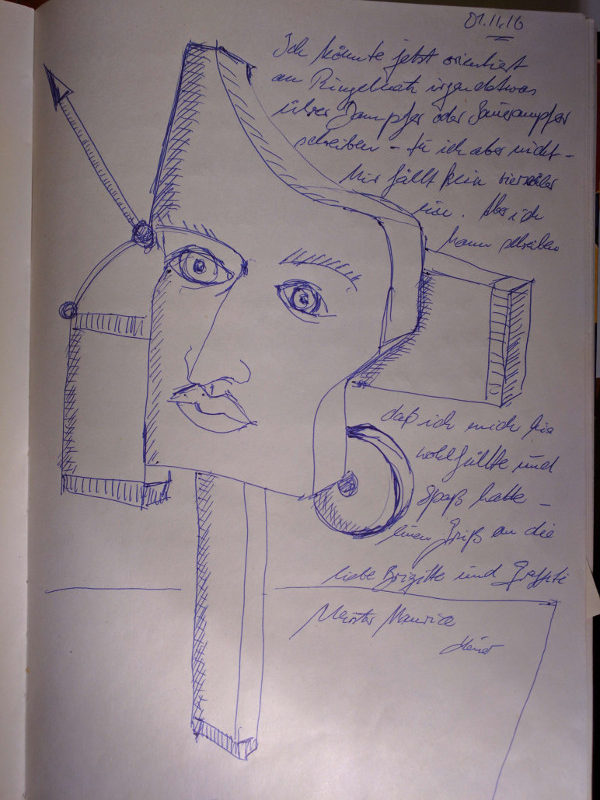 01.11.16
Ich könnte jetzt orientiert
an Ringelnatz irgendetwas
über Dampfer oder Sauerampfer
schreiben – tu ich aber nicht –
Mir fällt kein
ein. Aber ich
kann schreiben
daß ich mich hier
wohlfühlte und
Spaß hatte –
einen Gruß an die
liebe Brigitte und
Meister Maurice